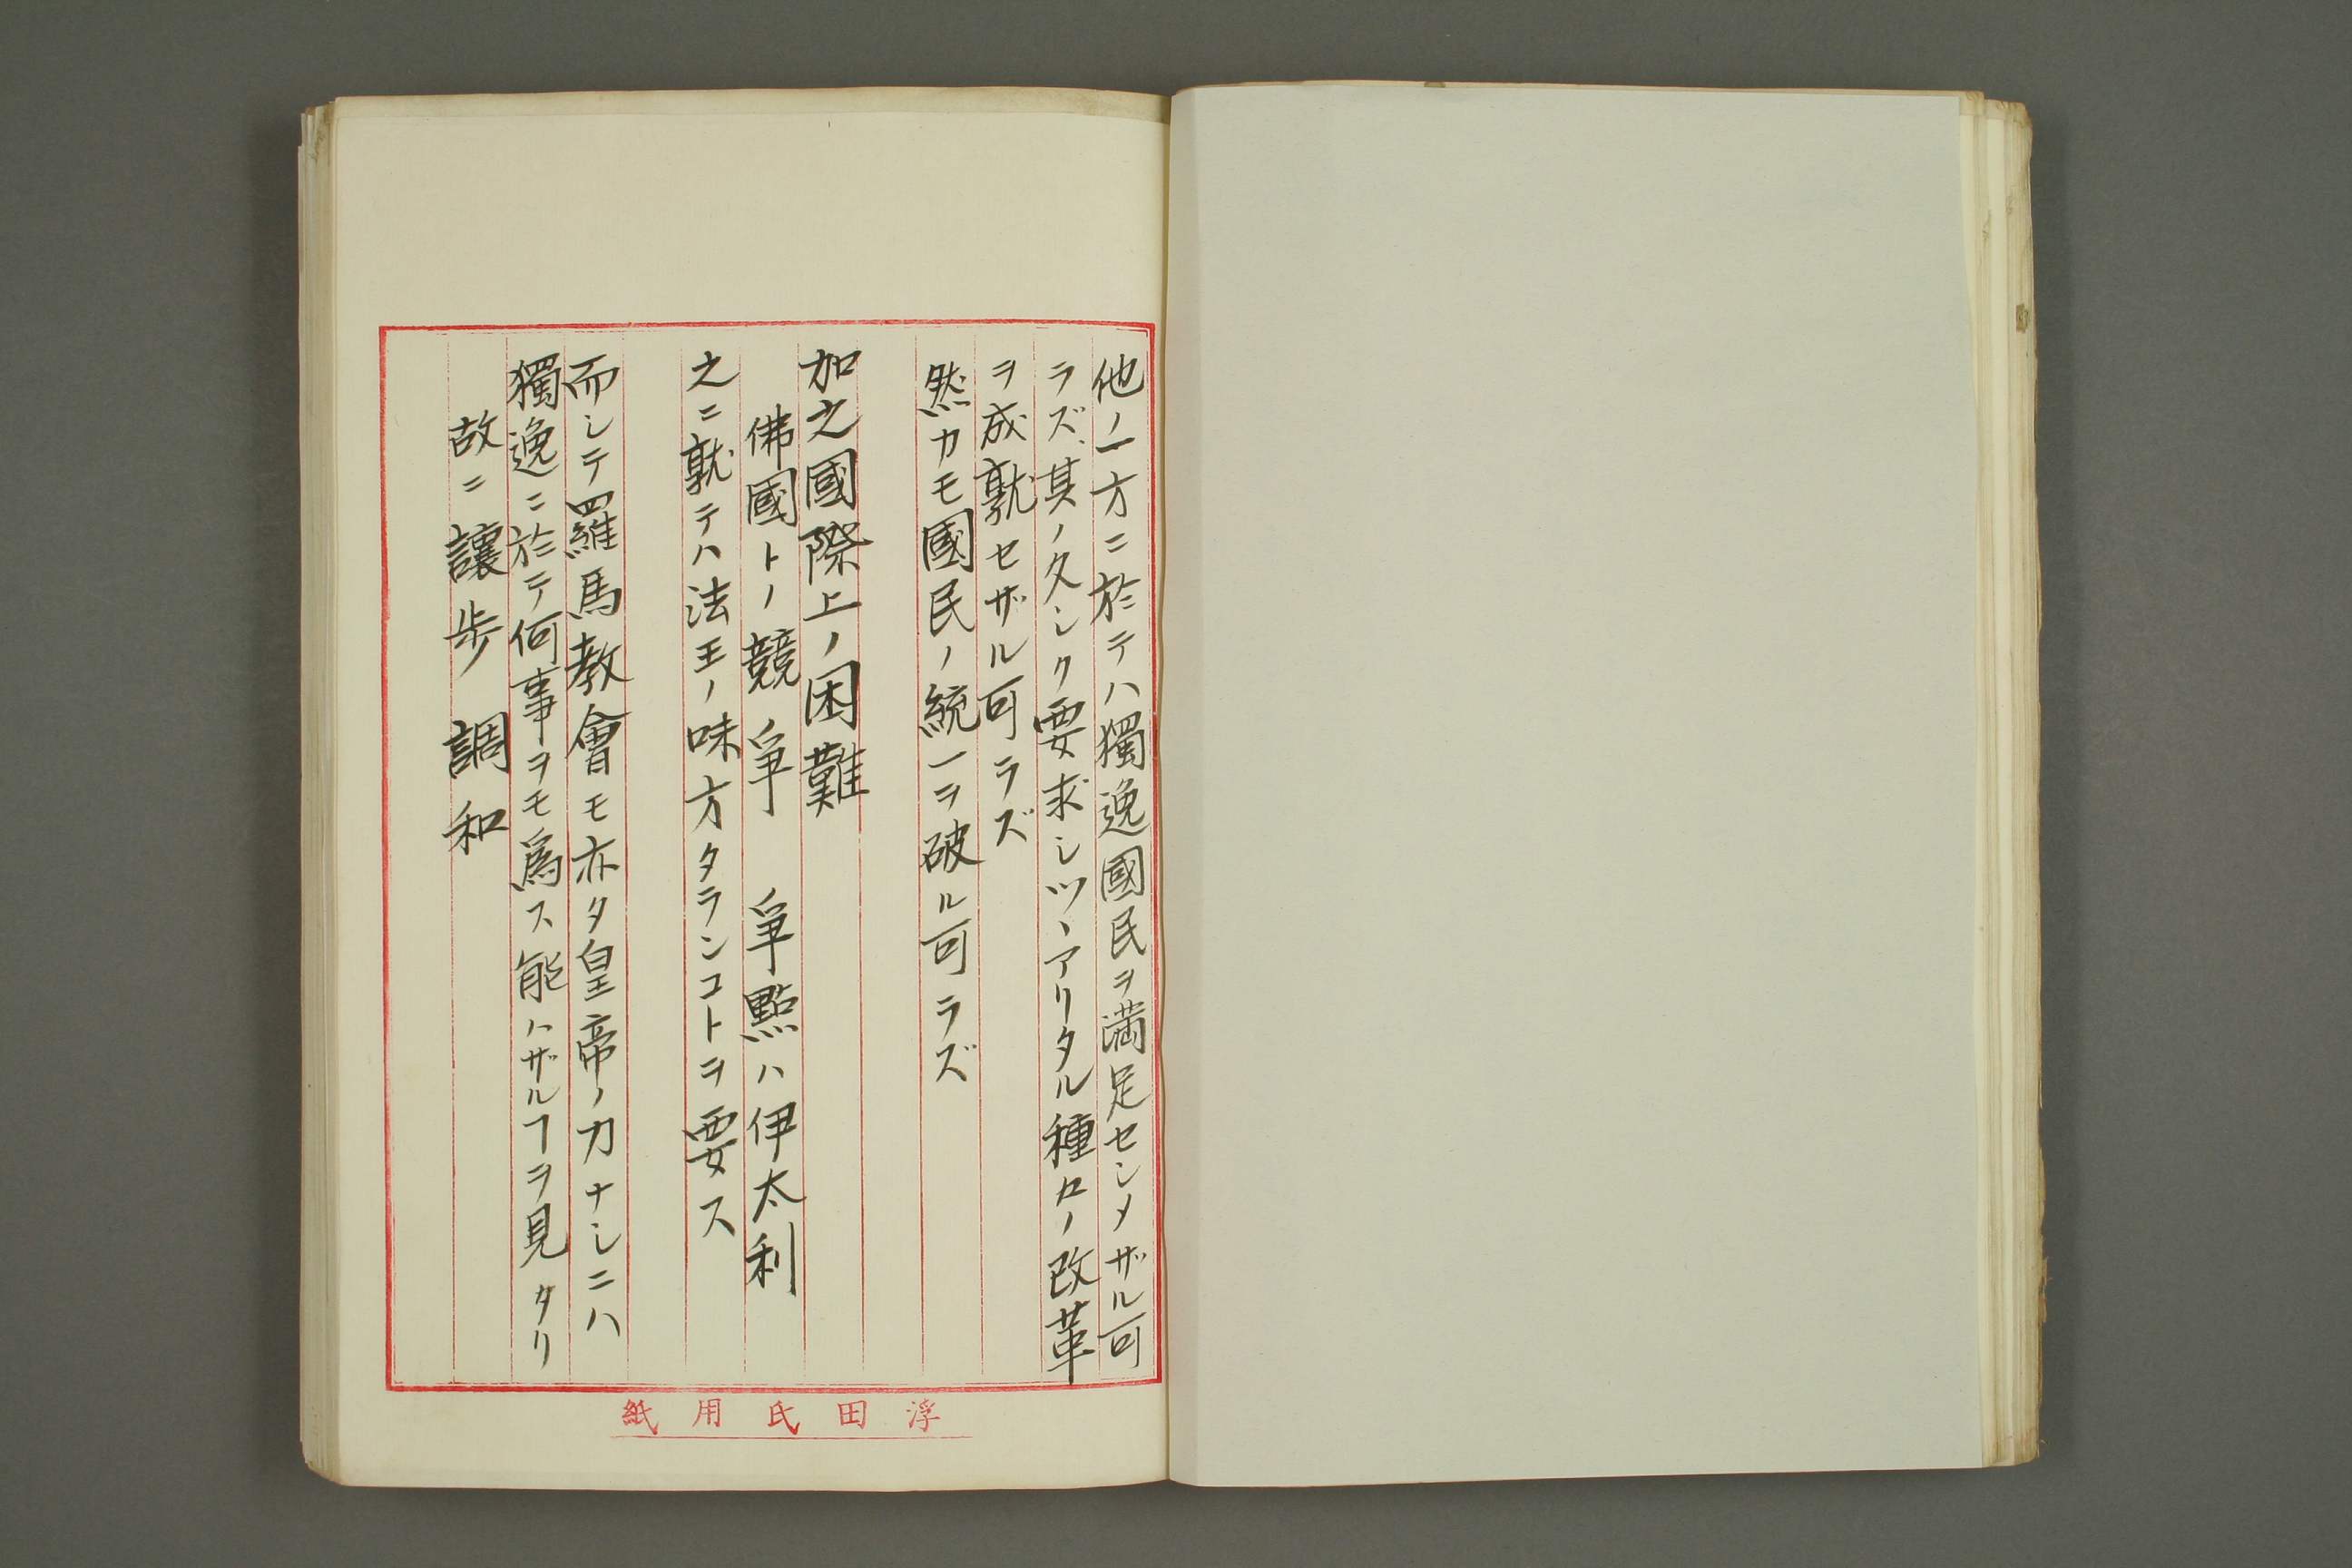 他ノ一方ニ於テハ獨逸國民ヲ満足セシメザル可
ラズ、其ノ久シク要求シツヽアリタル種々ノ改革
ヲ成就セザル可ラズ
然カモ國民ノ統一ヲ破ル可ラズ
加之國際上ノ困難
佛國トノ競爭 爭點ハ伊太利
之ニ就テハ法王ノ味方タランコトヲ要ス
而シテ羅馬教會モ亦タ皇帝ノ力ナシニハ
獨逸ニ於テ何事ヲモ爲ス能ハザルヿヲ見タリ
故ニ讓歩 調和
浮田氏用紙